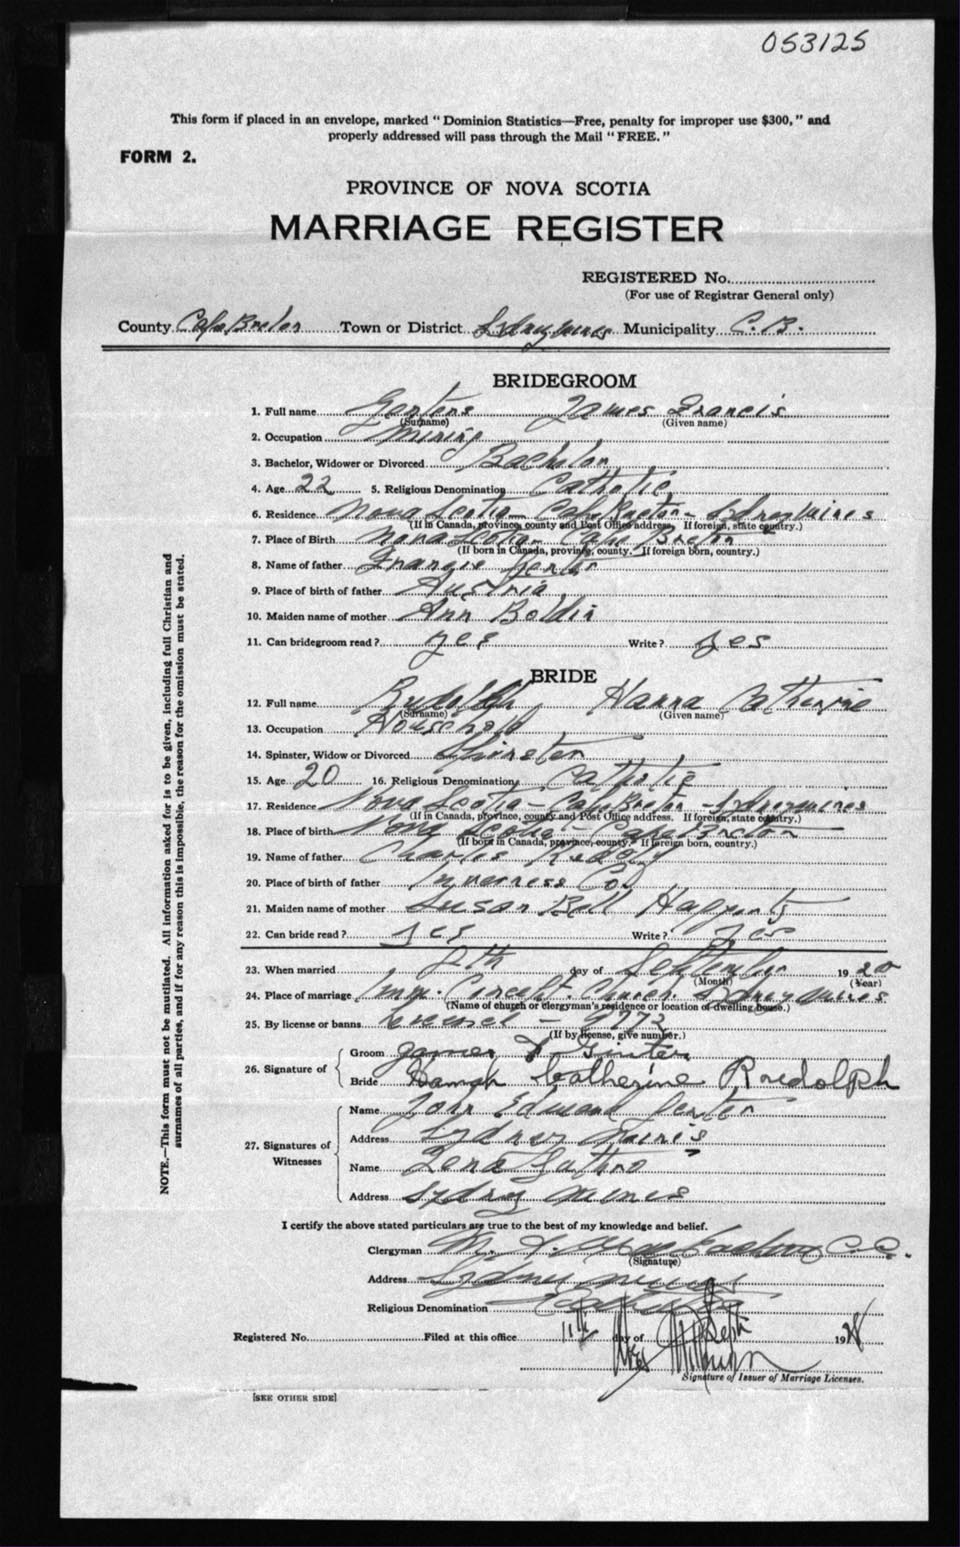 053125
This form if placed in an envelope, marked "Dominion Statistics—Free, penalty for improper use $300," and
properly addressed will pass through the Mail "FREE."
FORM 2.
PROVINCE OF NOVA SCOTIA
MARRIAGE REGISTER
REGISTERED No.
(For use of Registrar General only)
County Cape Breton Town or District Sydney Mines Municipality C.B.
BRIDEGROOM
1. Full name James Francis
(Surname) (Given name)
2. Occupation Mining
3. Bachelor, Widower or Divorced Bachelor
4. Age 22 5. Religious Denomination Catholic
6. Residence Nova Scotia - Cape Breton - Sydney Mines
(If in Canada, province, county and Post Office address. If foreign, state country.)
7. Place of Birth Nova Scotia - Cape Breton
(If born in Canada, province, county. If foreign born, country.)
8. Name of father Francis
9. Place of birth of father Austria
10. Maiden name of mother Ann
11. Can bridegroom read? yes Write? yes
BRIDE
12. Full name Rudolph Hanna Catherine
(Surname) (Given name)
13. Occupation Household
14. Spinster, Widow or Divorced Spinster
15. Age 20 16. Religious Denomination Catholic
17. Residence Nova Scotia - Cape Breton - Sydney Mines
(If in Canada, province, county and Post Office address. If foreign, state country.)
18. Place of birth Nova Scotia - Cape Breton
(If born in Canada, province, county. If foreign born, country.)
19. Name of father Charles
20. Place of birth of father Inverness Co
21. Maiden name of mother Susan Bell
22. Can bride read? yes Write? yes
23. When married day of September 19
(Month) (Year)
24. Place of marriage Imm. Concept. Church Sydney Mines
(Name of church or clergyman's residence or location of dwelling house.)
25. By license or banns
(If by license, give number.)
26. Signature of
Groom James
Bride Hannah Catherine Roudolph
27. Signatures of
Witnesses
Name John Edward
Address Sydney Mines
Name Lena
Address Sydney Mines
I certify the above stated particulars are true to the best of my knowledge and belief.
Clergyman C.C.
(Signature)
Address Sydney Mines
Religious Denomination
Registered No. Filed at this office 11th day of Sept 192
Signature of Issuer of Marriage Licenses.
[SEE OTHER SIDE]
NOTE.—This form must not be mutilated. All information asked for is to be given, including full Christian and
surnames of all parties, and if for any reason this is impossible, the reason for the omission must be stated.